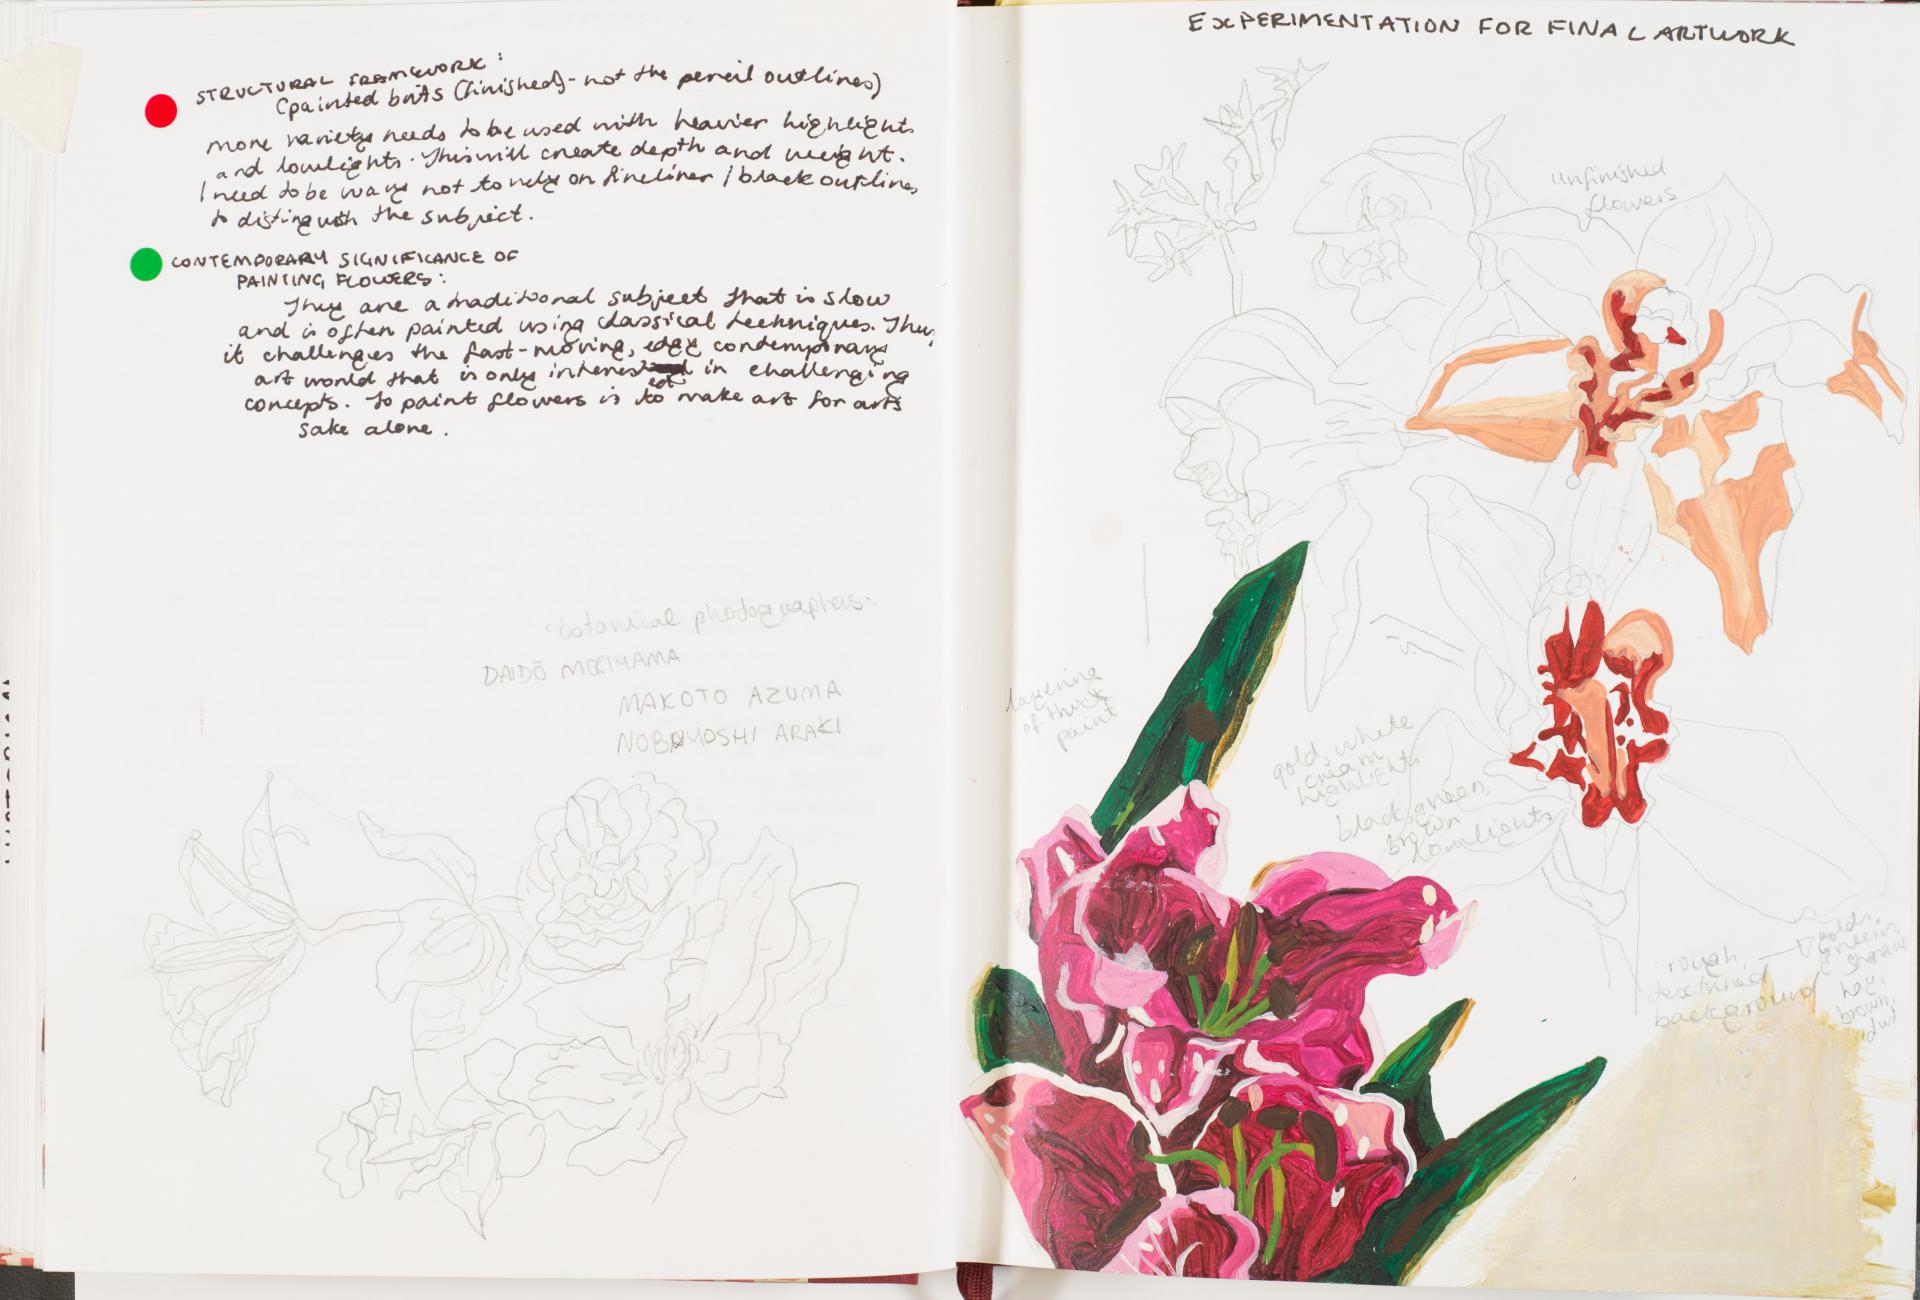 STRUCTURAL FRAMEWORK:
(painted bits (finished) - not the pencil outlines)
more variety needs to be used with heavier highlights
and lowlights. This will create depth and weight.
I need to be wary not to rely on fineliner / black outlines
to distinguish the subject.
CONTEMPORARY SIGNIFICANCE OF
PAINTING FLOWERS:
They are a traditional subject that is slow
and is often painted using classical techniques. Thus,
it challenges the fast-moving, edgy contemporary
art world that is only interested in challenging
concepts. To paint flowers is to make art for arts
sake alone.
botanical photographers:
DAIDŌ MORIYAMA
MAKOTO AZUMA
NOBUYOSHI ARAKI
EXPERIMENTATION FOR FINAL ARTWORK
unfinished
flowers
layering
of thick
paint
gold, white
cream
highlights
black, green,
brown
lowlights
rough,
textured
background
golds,
greens
brown,